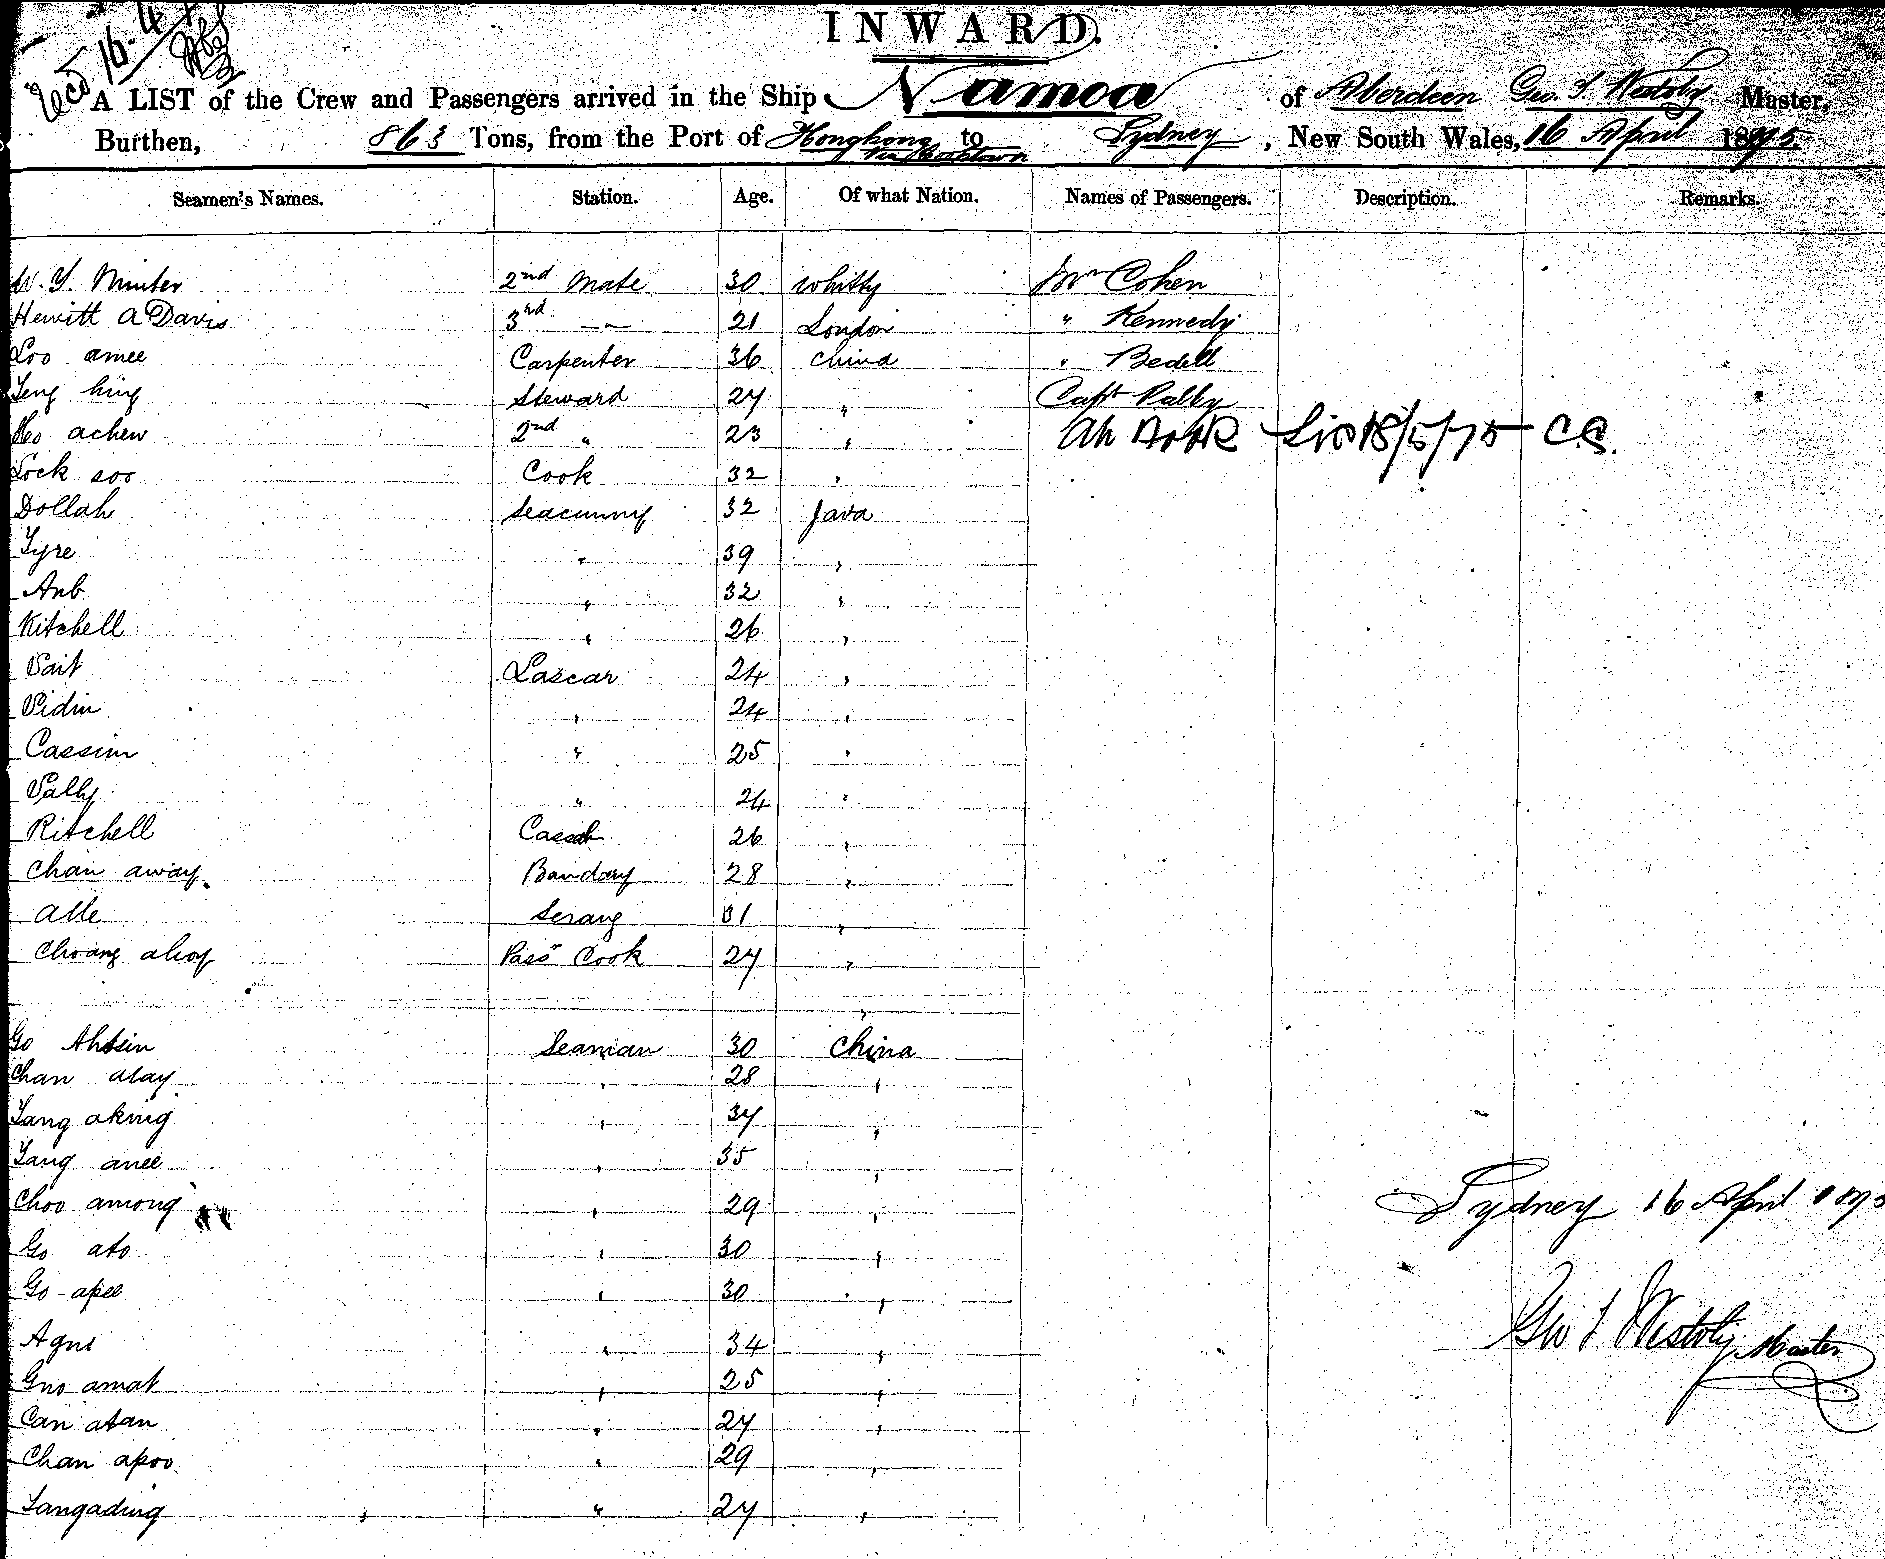 INWARD.
A LIST of the Crew and Passengers arrived in the Ship Namoa of Aberdeen Geo. T Westoby Master,
Burthen, 863 Tons, from the Port of Hongkong to Sydney, New South Wales, 16 April 1875.
via Cooktown
Seamen's Names. Station. Age. Of what Nation. Names of Passengers. Description. Remarks.
Minter 2nd Mate 30 Whitby Mr Cohen
Hewitt A Davis 3rd — 21 London " Kennedy
Loo amee Carpenter 36 China " Bedell
hing Steward 27 " Capt
achew 2nd " 23 "
Lock soo Cook 32 "
Dollah Seacunny 32 Java
Tyre " 39 "
" 32 "
Kitchell " 26 "
Sait Lascar 24 "
Sidin " 24 "
Cassim " 25 "
Sally " 24 "
Ritchell Cassab 26 "
Chan away Banday 28 "
Alle Serang 31 "
Choang ahoy Pass Cook 27 "
"
Go Ahsein Seaman 30 China
Chan atay " 28 "
Tang aking " 37 "
Tang anee " 35 "
Choo among " 29 " Sydney 16 April 1875
Go ato " 30 "
Go apee " 30 "
" 34 " Geo T Westoby Master
Gno amat " 25 "
Can atan " 27 "
Chan apoo " 29 "
Tangading " 27 "